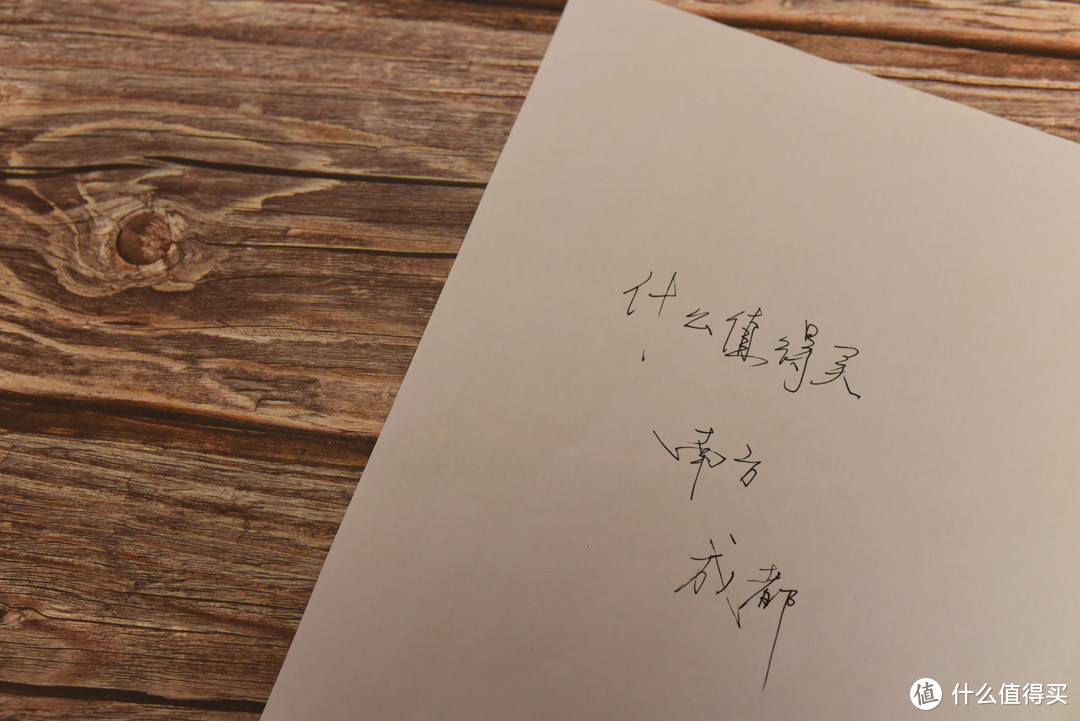 什么值得买
南方
成都
值 什么值得买